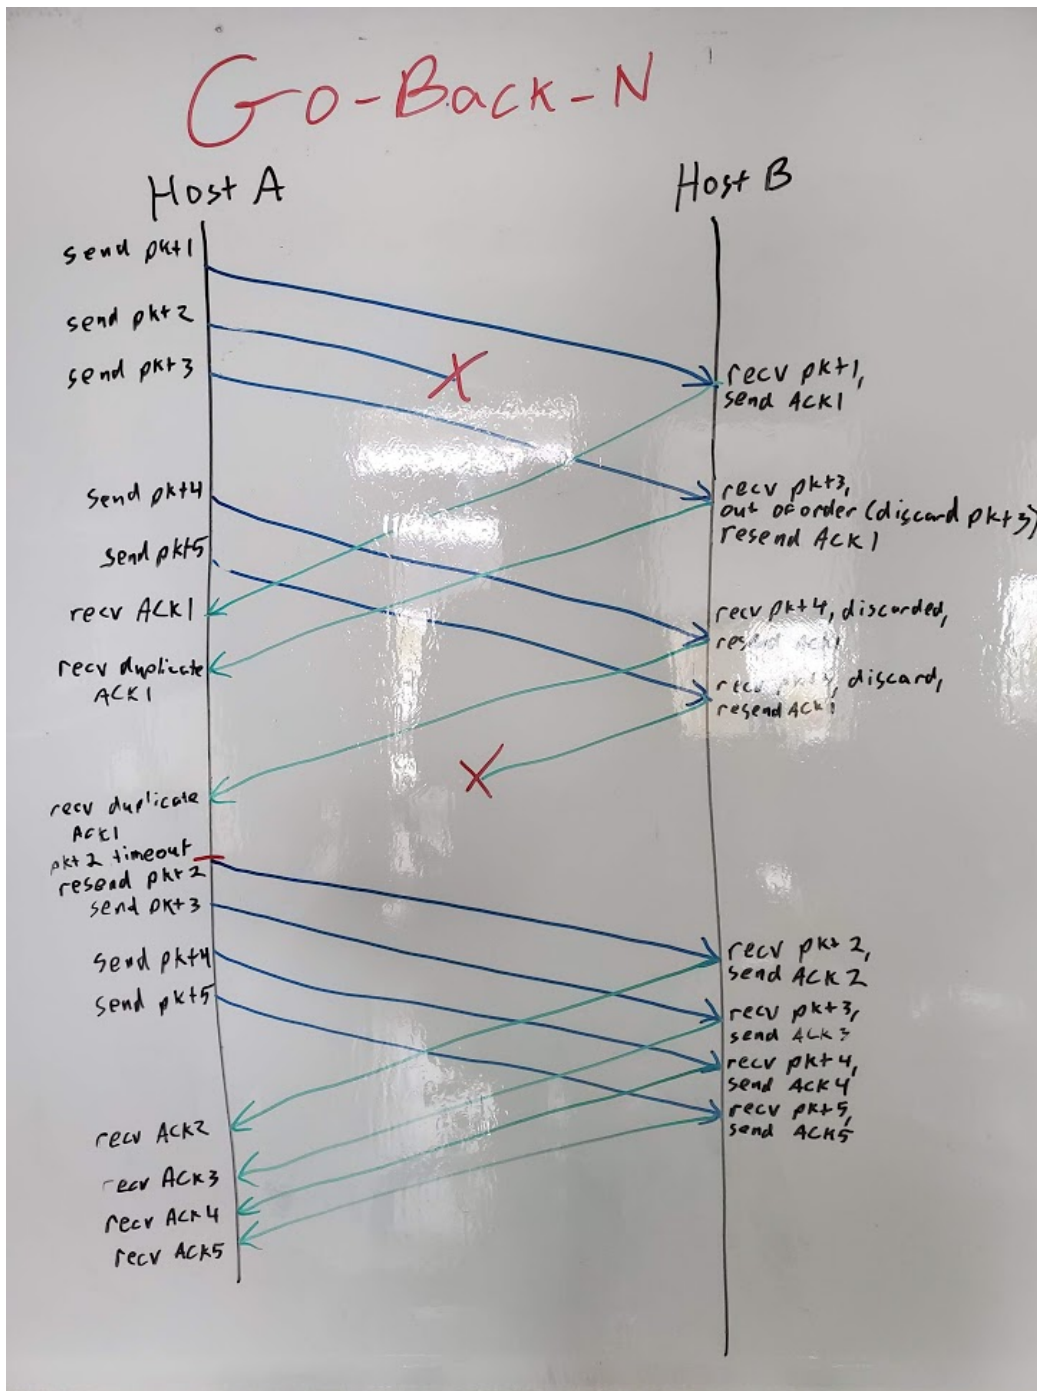 Go-Back-N
Host A
Host B
send pkt1
send pkt2
send pkt3
recv pkt1,
send ACK1
send pkt4
recv pkt3,
out of order (discard pkt3)
resend ACK1
send pkt5
recv ACK1
recv pkt4, discarded,
resend ACK1
recv duplicate
ACK1
recv discard,
resend ACK1
recv duplicate
ACK1
pkt2 timeout
resend pkt2
send pkt3
send pkt4
send pkt5
recv pkt2,
send ACK2
recv pkt3,
send ACK3
recv pkt4,
send ACK4
recv pkt5,
send ACK5
recv ACK2
recv ACK3
recv ACK4
recv ACK5